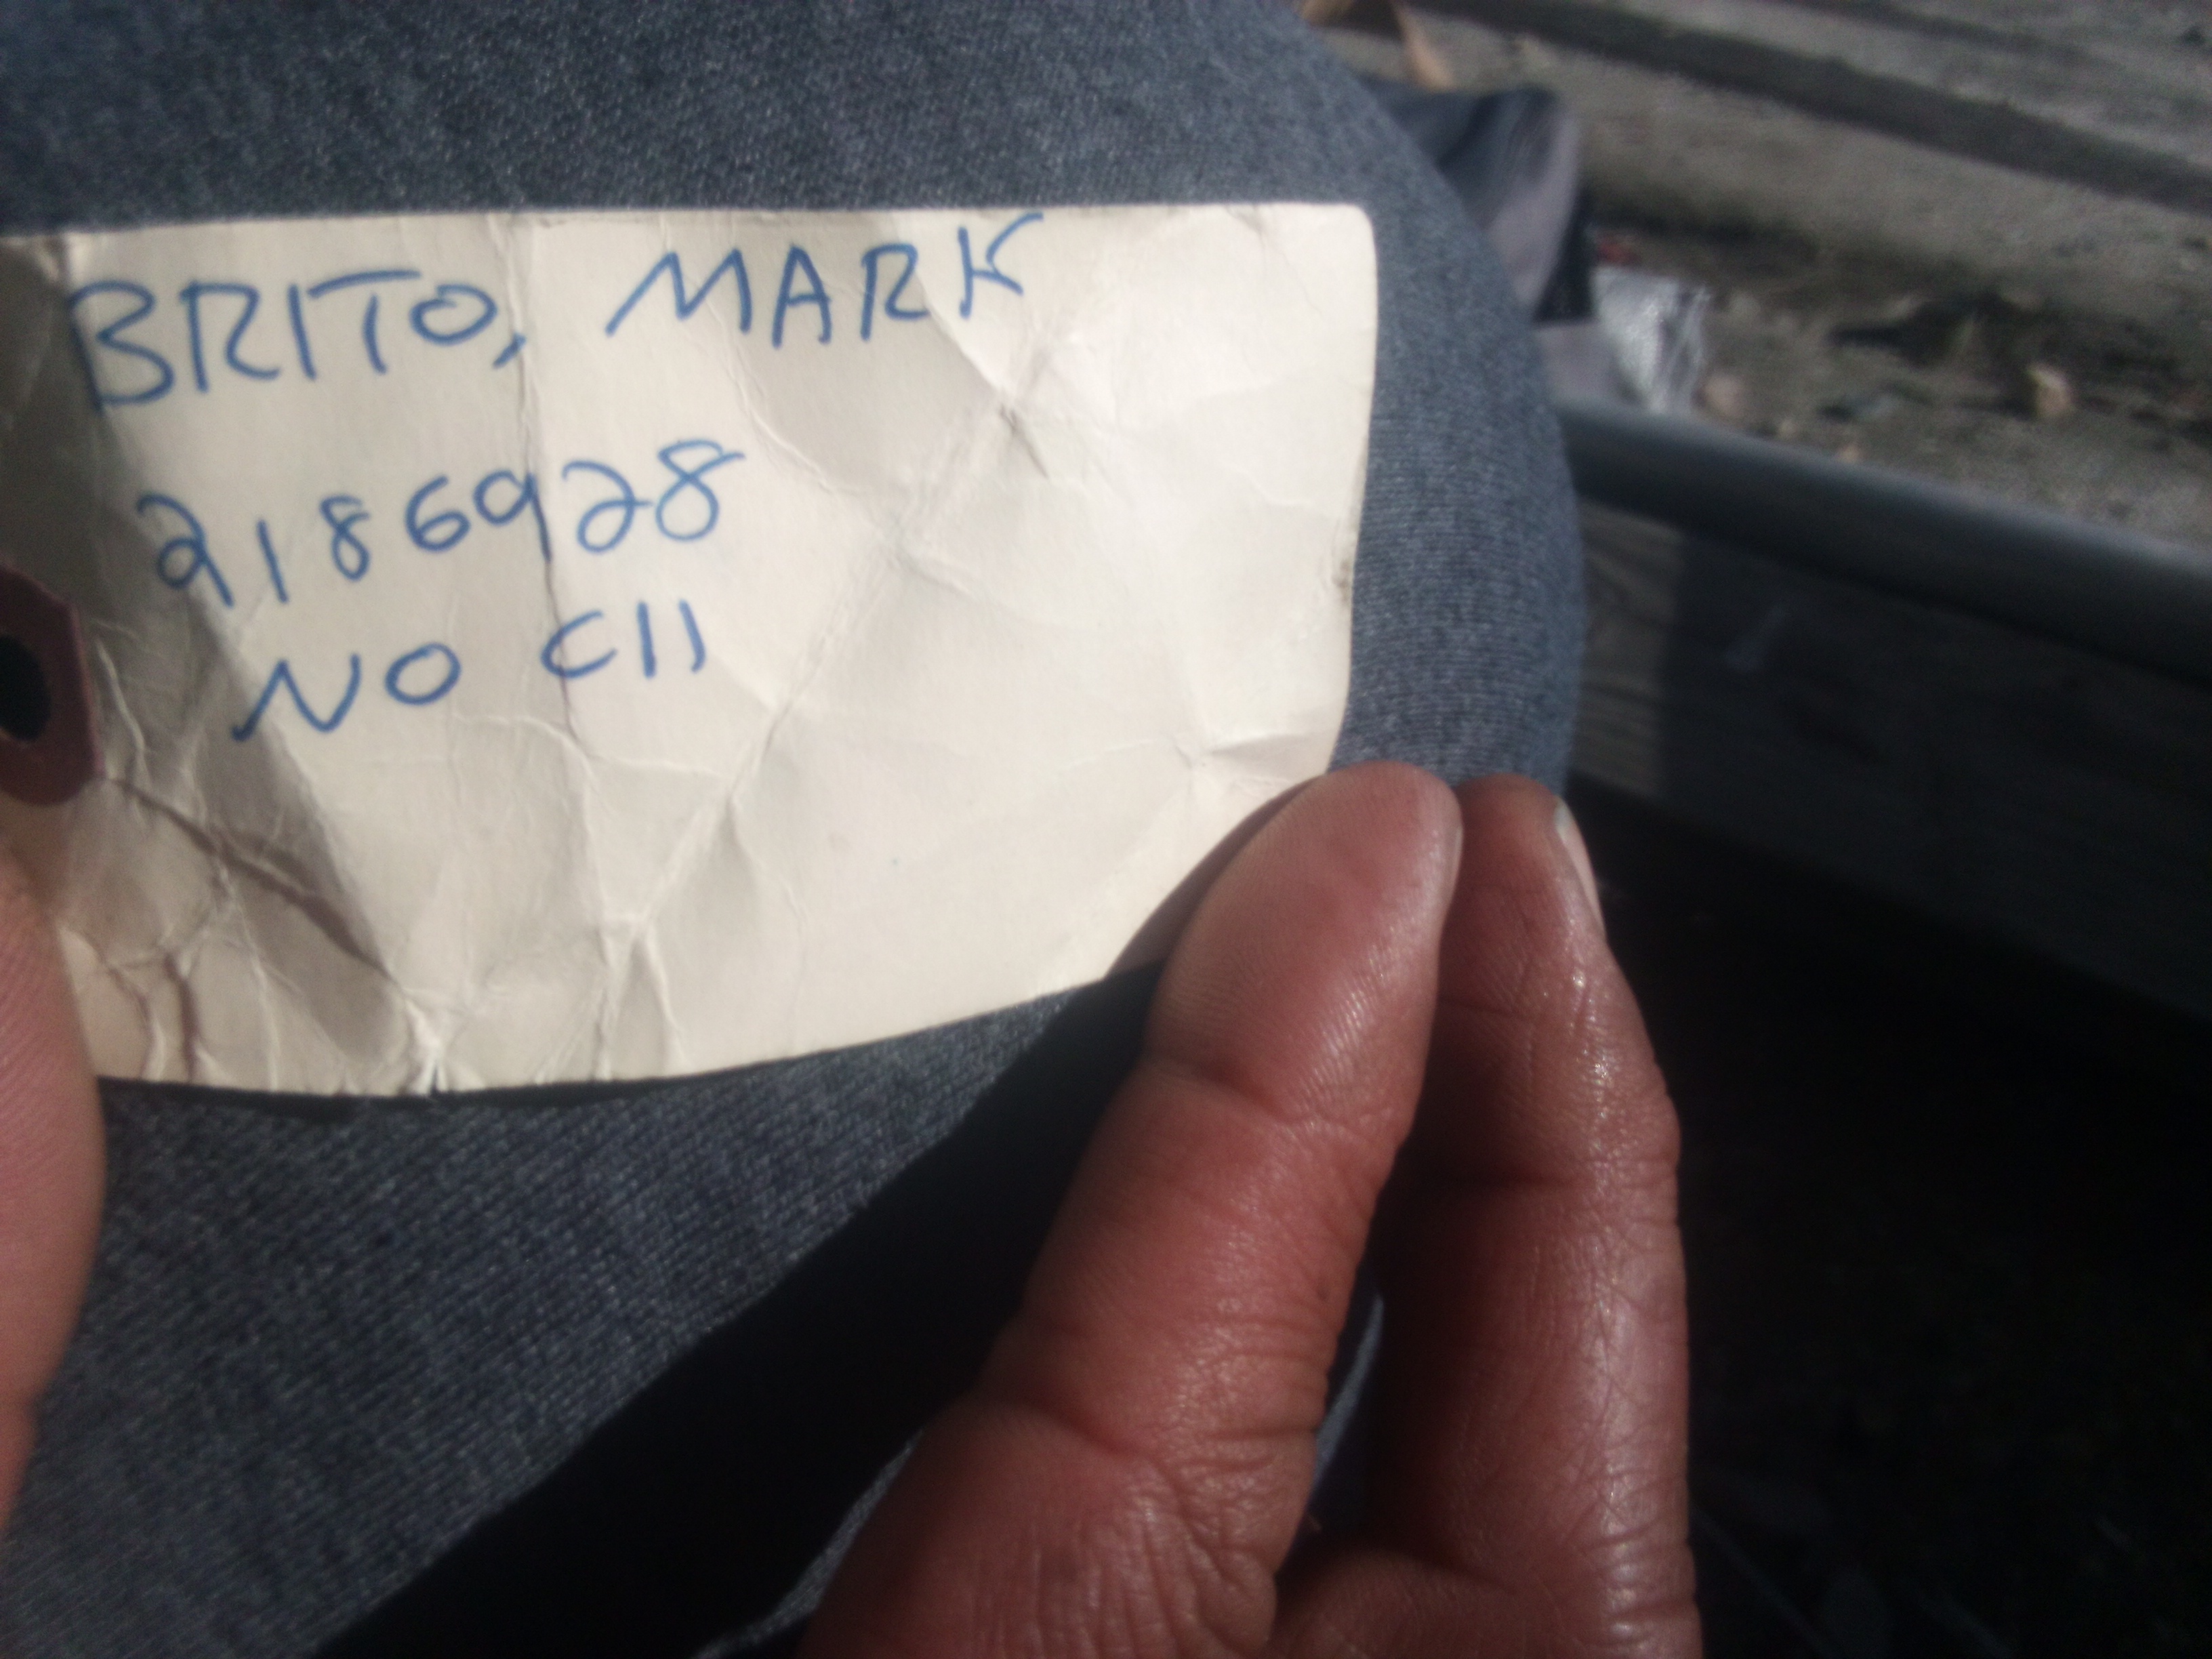 BRITO, MARK
2186928
NO CII